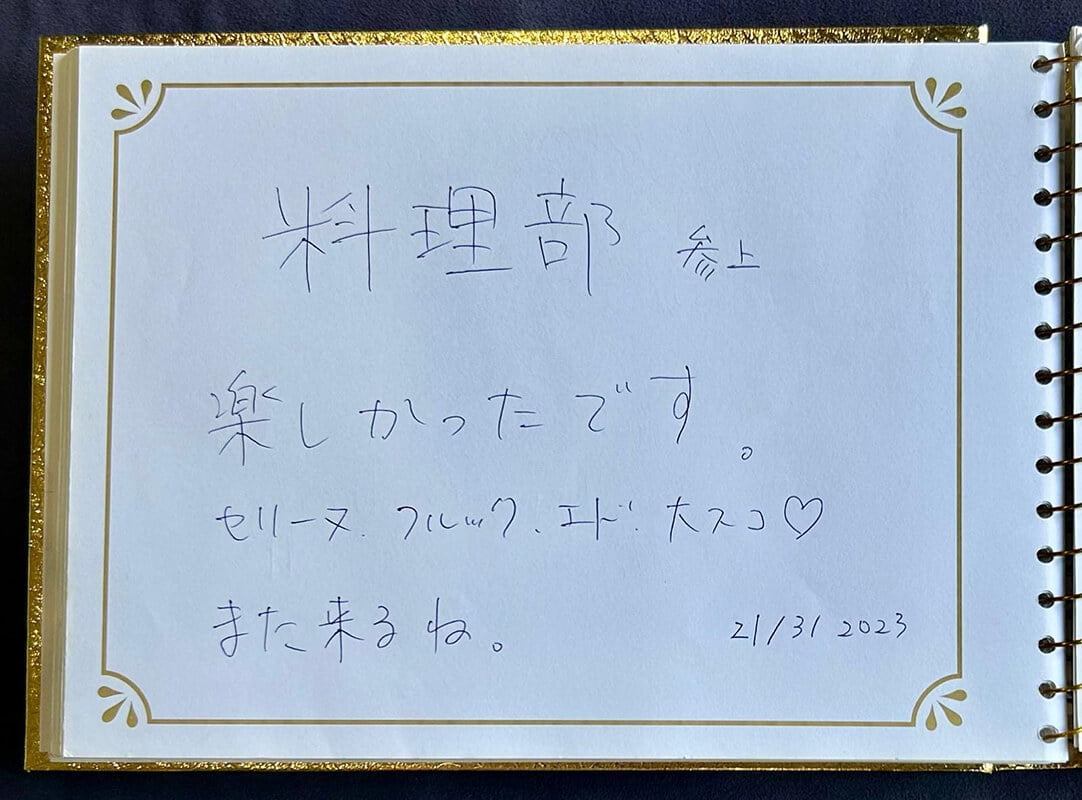 料理部 参上
楽しかったです。
セリーヌ、フルック、エド、大スコ♡
また来るね。
21/31 2023